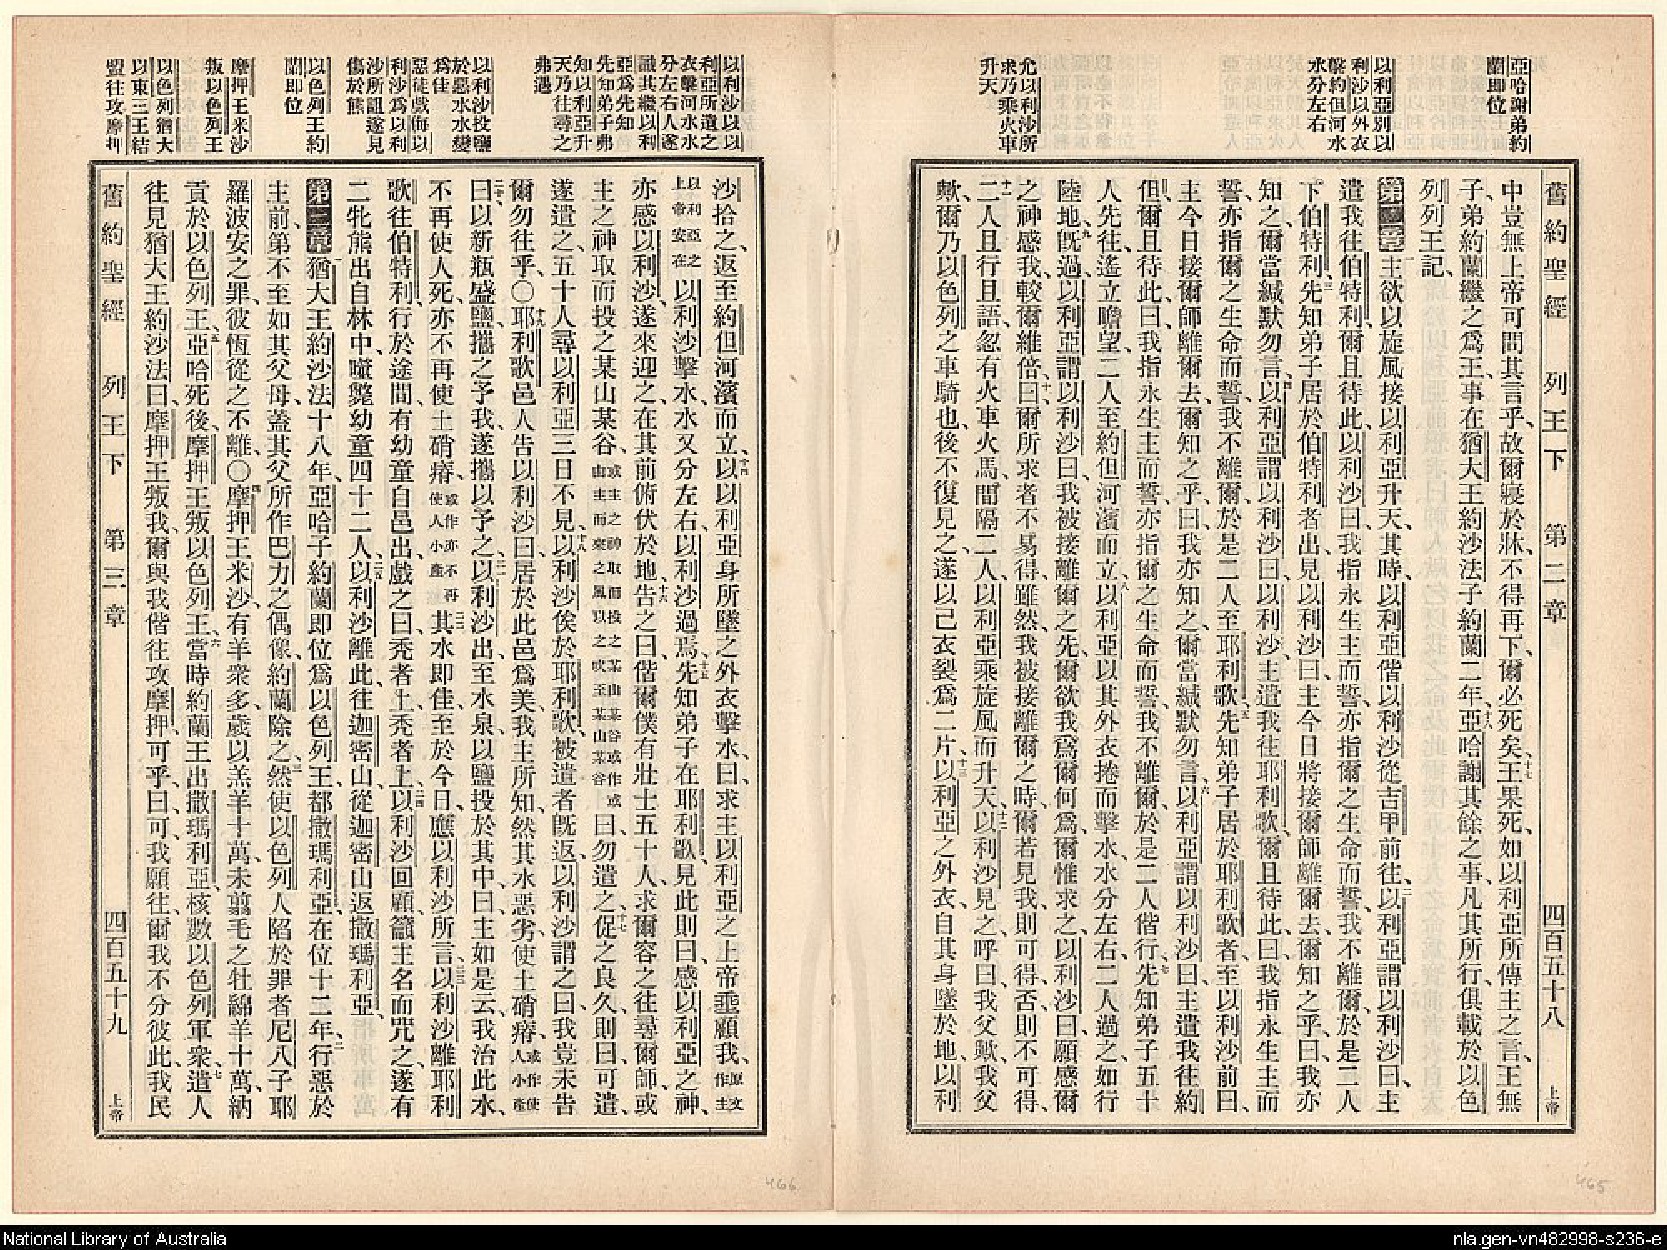 亞哈謝弟約
蘭即位
以利亞別以
利沙以外衣
擊約但河水
水分左右
允以利沙所
求乃乘火車
升天
舊約聖經 列王下 第二章 四百五十八 上帝
中豈無上帝可問其言乎、故爾寢於牀、不得再下、爾必死矣、王果死、如以利亞所傳主之言、王無
子、弟約蘭繼之爲王、事在猶大王約沙法子約蘭二年、亞哈謝其餘之事、凡其所行、俱載於以色
列列王記、
第二章 主欲以旋風接以利亞升天、其時、以利亞偕以利沙從吉甲前往、以利亞謂以利沙曰、主
遣我往伯特利、爾且待此、以利沙曰、我指永生主而誓、亦指爾之生命而誓、我不離爾、於是二人
下伯特利、先知弟子居於伯特利者出、見以利沙曰、主今日將接爾師離爾去、爾知之乎、曰、我亦
知之、爾當緘默勿言、以利亞謂以利沙曰、以利沙、主遣我往耶利歌、爾且待此、曰、我指永生主而
誓、亦指爾之生命而誓、我不離爾、於是二人至耶利歌、先知弟子居於耶利歌者、至以利沙前曰、
主今日接爾師離爾去、爾知之乎、曰、我亦知之、爾當緘默勿言、以利亞謂以利沙曰、主遣我往約
但、爾且待此、曰、我指永生主而誓、亦指爾之生命而誓、我不離爾、於是二人偕行、先知弟子五十
人先往、遙立瞻望、二人至約但河濱而立、以利亞以其外衣捲而擊水、水分左右、二人過之、如行
陸地、旣過、以利亞謂以利沙曰、我被接離爾之先、爾欲我爲爾何爲、爾惟求之、以利沙曰、願感爾
之神感我、較爾維倍、曰、爾所求者不易得、雖然、我被接離爾之時、爾若見我、則可得、否則不可得、
二人且行且語、忽有火車火馬、間隔二人、以利亞乘旋風而升天、以利沙見之、呼曰、我父歟、我父
歟、爾乃以色列之車騎也、後不復見之、遂以己衣裂爲二片、以利亞之外衣、自其身墜於地、以利
465
以利沙以以
利亞所遺之
衣擊河水水
分左右人遂
識其繼以利
亞爲先知
先知弟子弗
知以利亞升
天乃往尋之
弗遇
以利沙投鹽
於惡水水變
爲佳
惡徒戲侮以
利沙爲以利
沙所詛遂見
傷於熊
以色列王約
蘭即位
摩押王米沙
叛以色列王
以色列猶大
以東三王結
盟往攻摩押
沙拾之、返至約但河濱而立、以以利亞身所墜之外衣擊水、曰、求主以利亞之上帝垂顧我、原文作主
以利亞之上帝安在以利沙擊水、水又分左右、以利沙過焉、先知弟子在耶利歌、見此則曰、感以利亞之神、
亦感以利沙、遂來迎之、在其前俯伏於地、告之曰、偕爾僕有壯士五十人、求爾容之往尋爾師、或
主之神取而投之某山某谷、或主之神取而投之某山某谷或作或由主而來之風取之或至某山某谷曰、勿遣之、促之良久、則曰、可遣、
遂遣之、五十人尋以利亞、三日不見、以利沙俟於耶利歌、被遣者旣返、以利沙謂之曰、我豈未告
爾勿往乎、〇耶利歌邑人告以利沙曰、居於此邑爲美、我主所知、然其水惡劣、使土磽瘠、或作使人小產
曰、以新瓶盛鹽、攜之予我、遂攜以予之、以利沙出至水泉、以鹽投於其中曰、主如是云、我治此水、
不再使人死、亦不再使土磽瘠、或作亦不再使人小產其水即佳、至於今日、應以利沙所言、以利沙離耶利
歌、往伯特利、行於途間、有幼童自邑出、戲之曰、禿者上、禿者上、以利沙回顧、籲主名而咒之、遂有
二牝熊出自林中、囓斃幼童四十二人、以利沙離此、往迦密山、從迦密山返撒瑪利亞、
第三章 猶大王約沙法十八年、亞哈子約蘭即位爲以色列王、都撒瑪利亞、在位十二年、行惡於
主前、第不至如其父母、蓋其父所作巴力之偶像、約蘭除之、然使以色列人陷於罪者尼八子耶
羅波安之罪、彼恆從之不離、〇摩押王米沙有羊衆多、歲以羔羊十萬、未翦毛之牡綿羊十萬、納
貢於以色列王、亞哈死後、摩押王叛以色列王、當時約蘭王出撒瑪利亞、核數以色列軍衆、遣人
往見猶大王約沙法曰、摩押王叛我、爾與我偕往攻摩押可乎、曰、可、我願往、爾我不分彼此、我民
舊約聖經 列王下 第三章 四百五十九 上帝
466
National Library of Australia
nla.gen-vn482998-s236-e